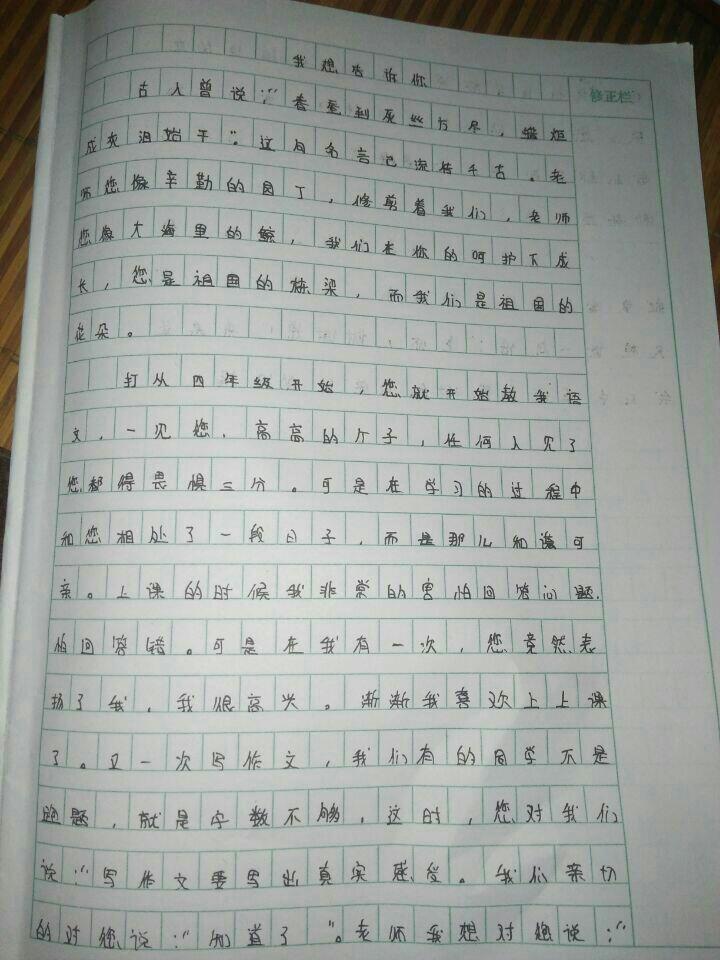 我想告诉你
修正栏
古人曾说:“春蚕到死丝方尽,蜡炬
成灰泪始干”。这句名言已流传千古。老
师您像辛勤的园丁,修剪着我们,老师
您像大海里的鲸,我们在你的呵护下成
长,您是祖国的栋梁,而我们是祖国的
花朵。
打从四年级开始,您就开始教我语
文,一见您,高高的个子,任何人见了
您都得畏惧三分。可是在学习的过程中
和您相处了一段日子,而是那么和谐可
亲。上课的时候我非常的害怕回答问题,
怕回答错。可是在我有一次,您竟然表
扬了我,我很高兴。渐渐我喜欢上上课
了。又一次写作文,我们有的同学不是
跑题,就是字数不够,这时,您对我们
说:“写作文要写出真实感受。我们亲切
的对您说:“知道了”。老师我想对您说:“